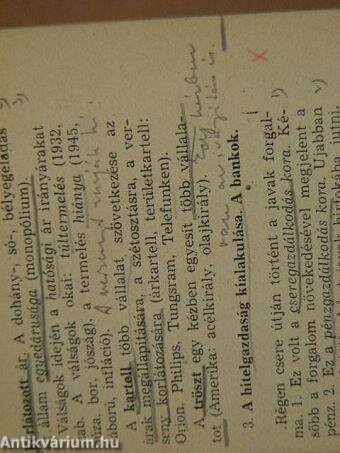 rlátozott ár. A dohány-, só-, bélyegeladás
állam egyedárusága (monopólium).
Válságok idején a hatósági ár irányárakat
ab. A válságok okai: túltermelés (1932,
úza, bor, jószág), a termelés hiánya (1945,
áború, infláció).
A kartell több vállalat szövetkezése az
árak megállapítására, a szétosztásra, a ver-
seny korlátozására (árkartell, területkartell:
Orion, Philips, Tungsram, Telefunken).
A tröszt egy kézben egyesít több vállala-
tot (Amerika: acélkirály, olajkirály).
3. A hitelgazdaság kialakulása. A bankok.
Régen csere útján történt a javak forgal-
ma. 1. Ez volt a cseregazdálkodás kora. Ké-
sőbb a forgalom növekedésével megjelent a
pénz. 2. Ez a pénzgazdálkodás kora. Újabban
Antikvárium.hu